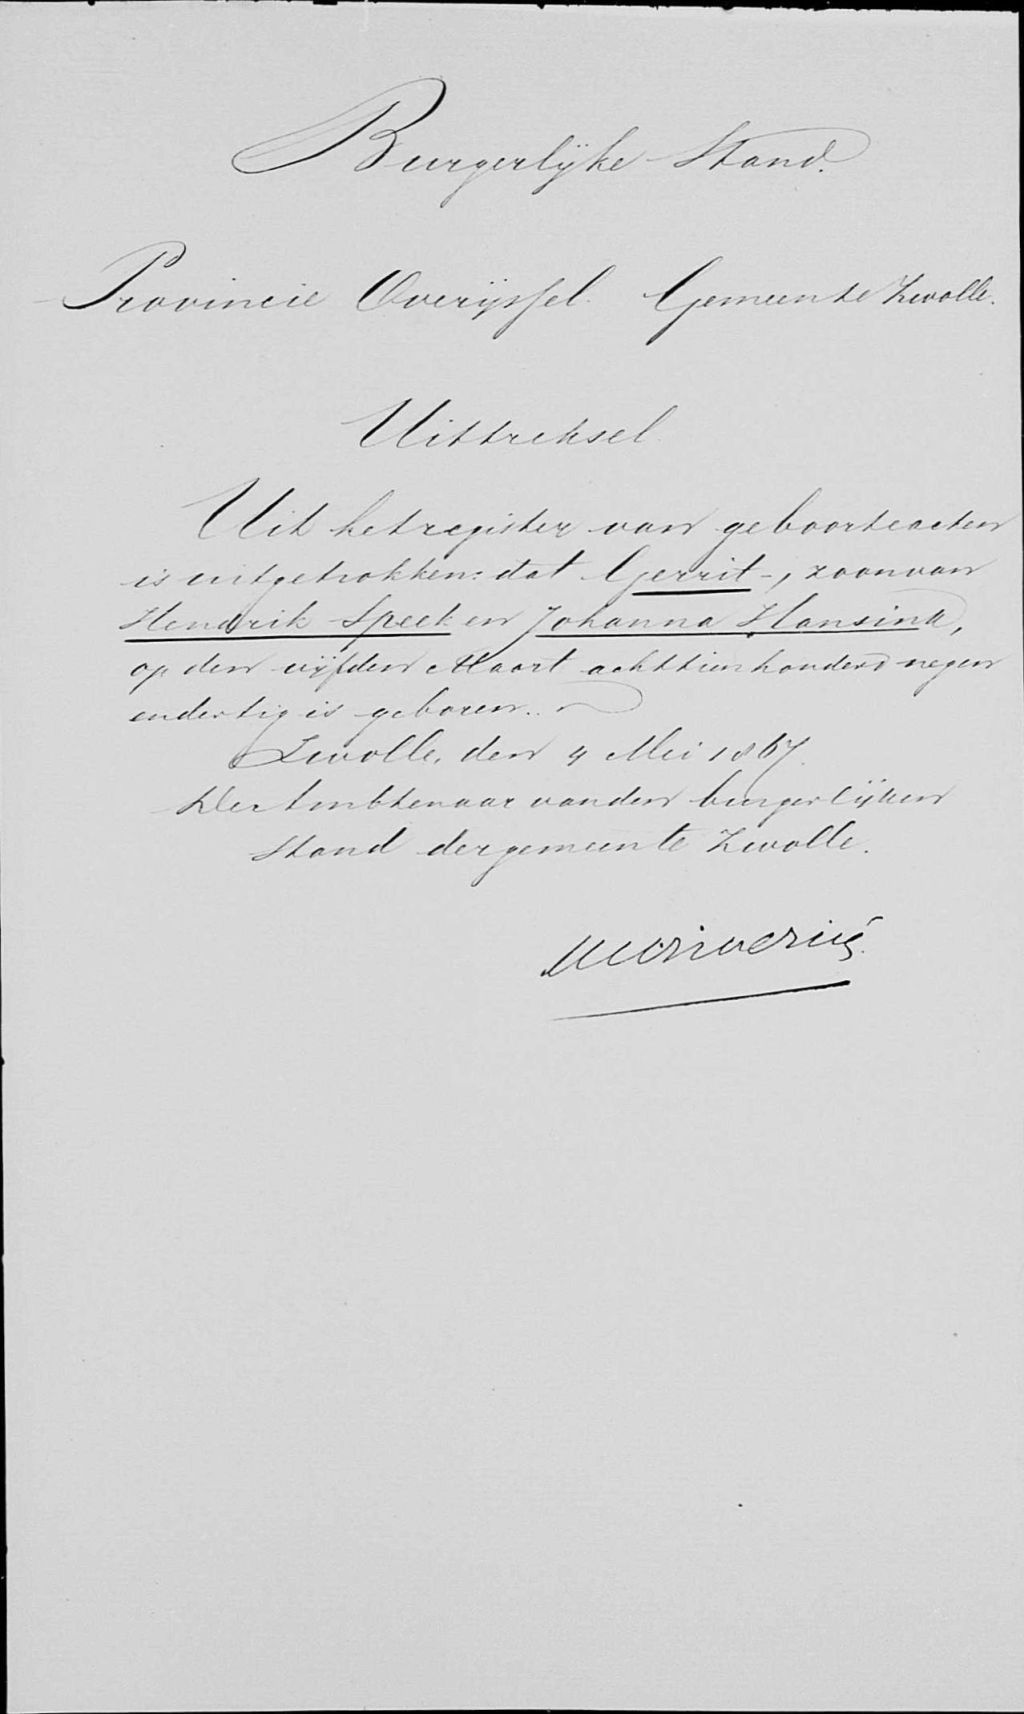 Burgerlijke Stand.
Provincie Overijssel. Gemeente Zwolle.
Uittreksel.
Uit het register van geboorteacten
is uitgetrokken: dat Gerrit -, zoon van
Hendrik Speek en Johanna Hansink,
op den vijfden Maart achttienhonderd negen
endertig is geboren.
Zwolle, den 4 Mei 1867.
De Ambtenaar van den burgerlijken
Stand der gemeente Zwolle.